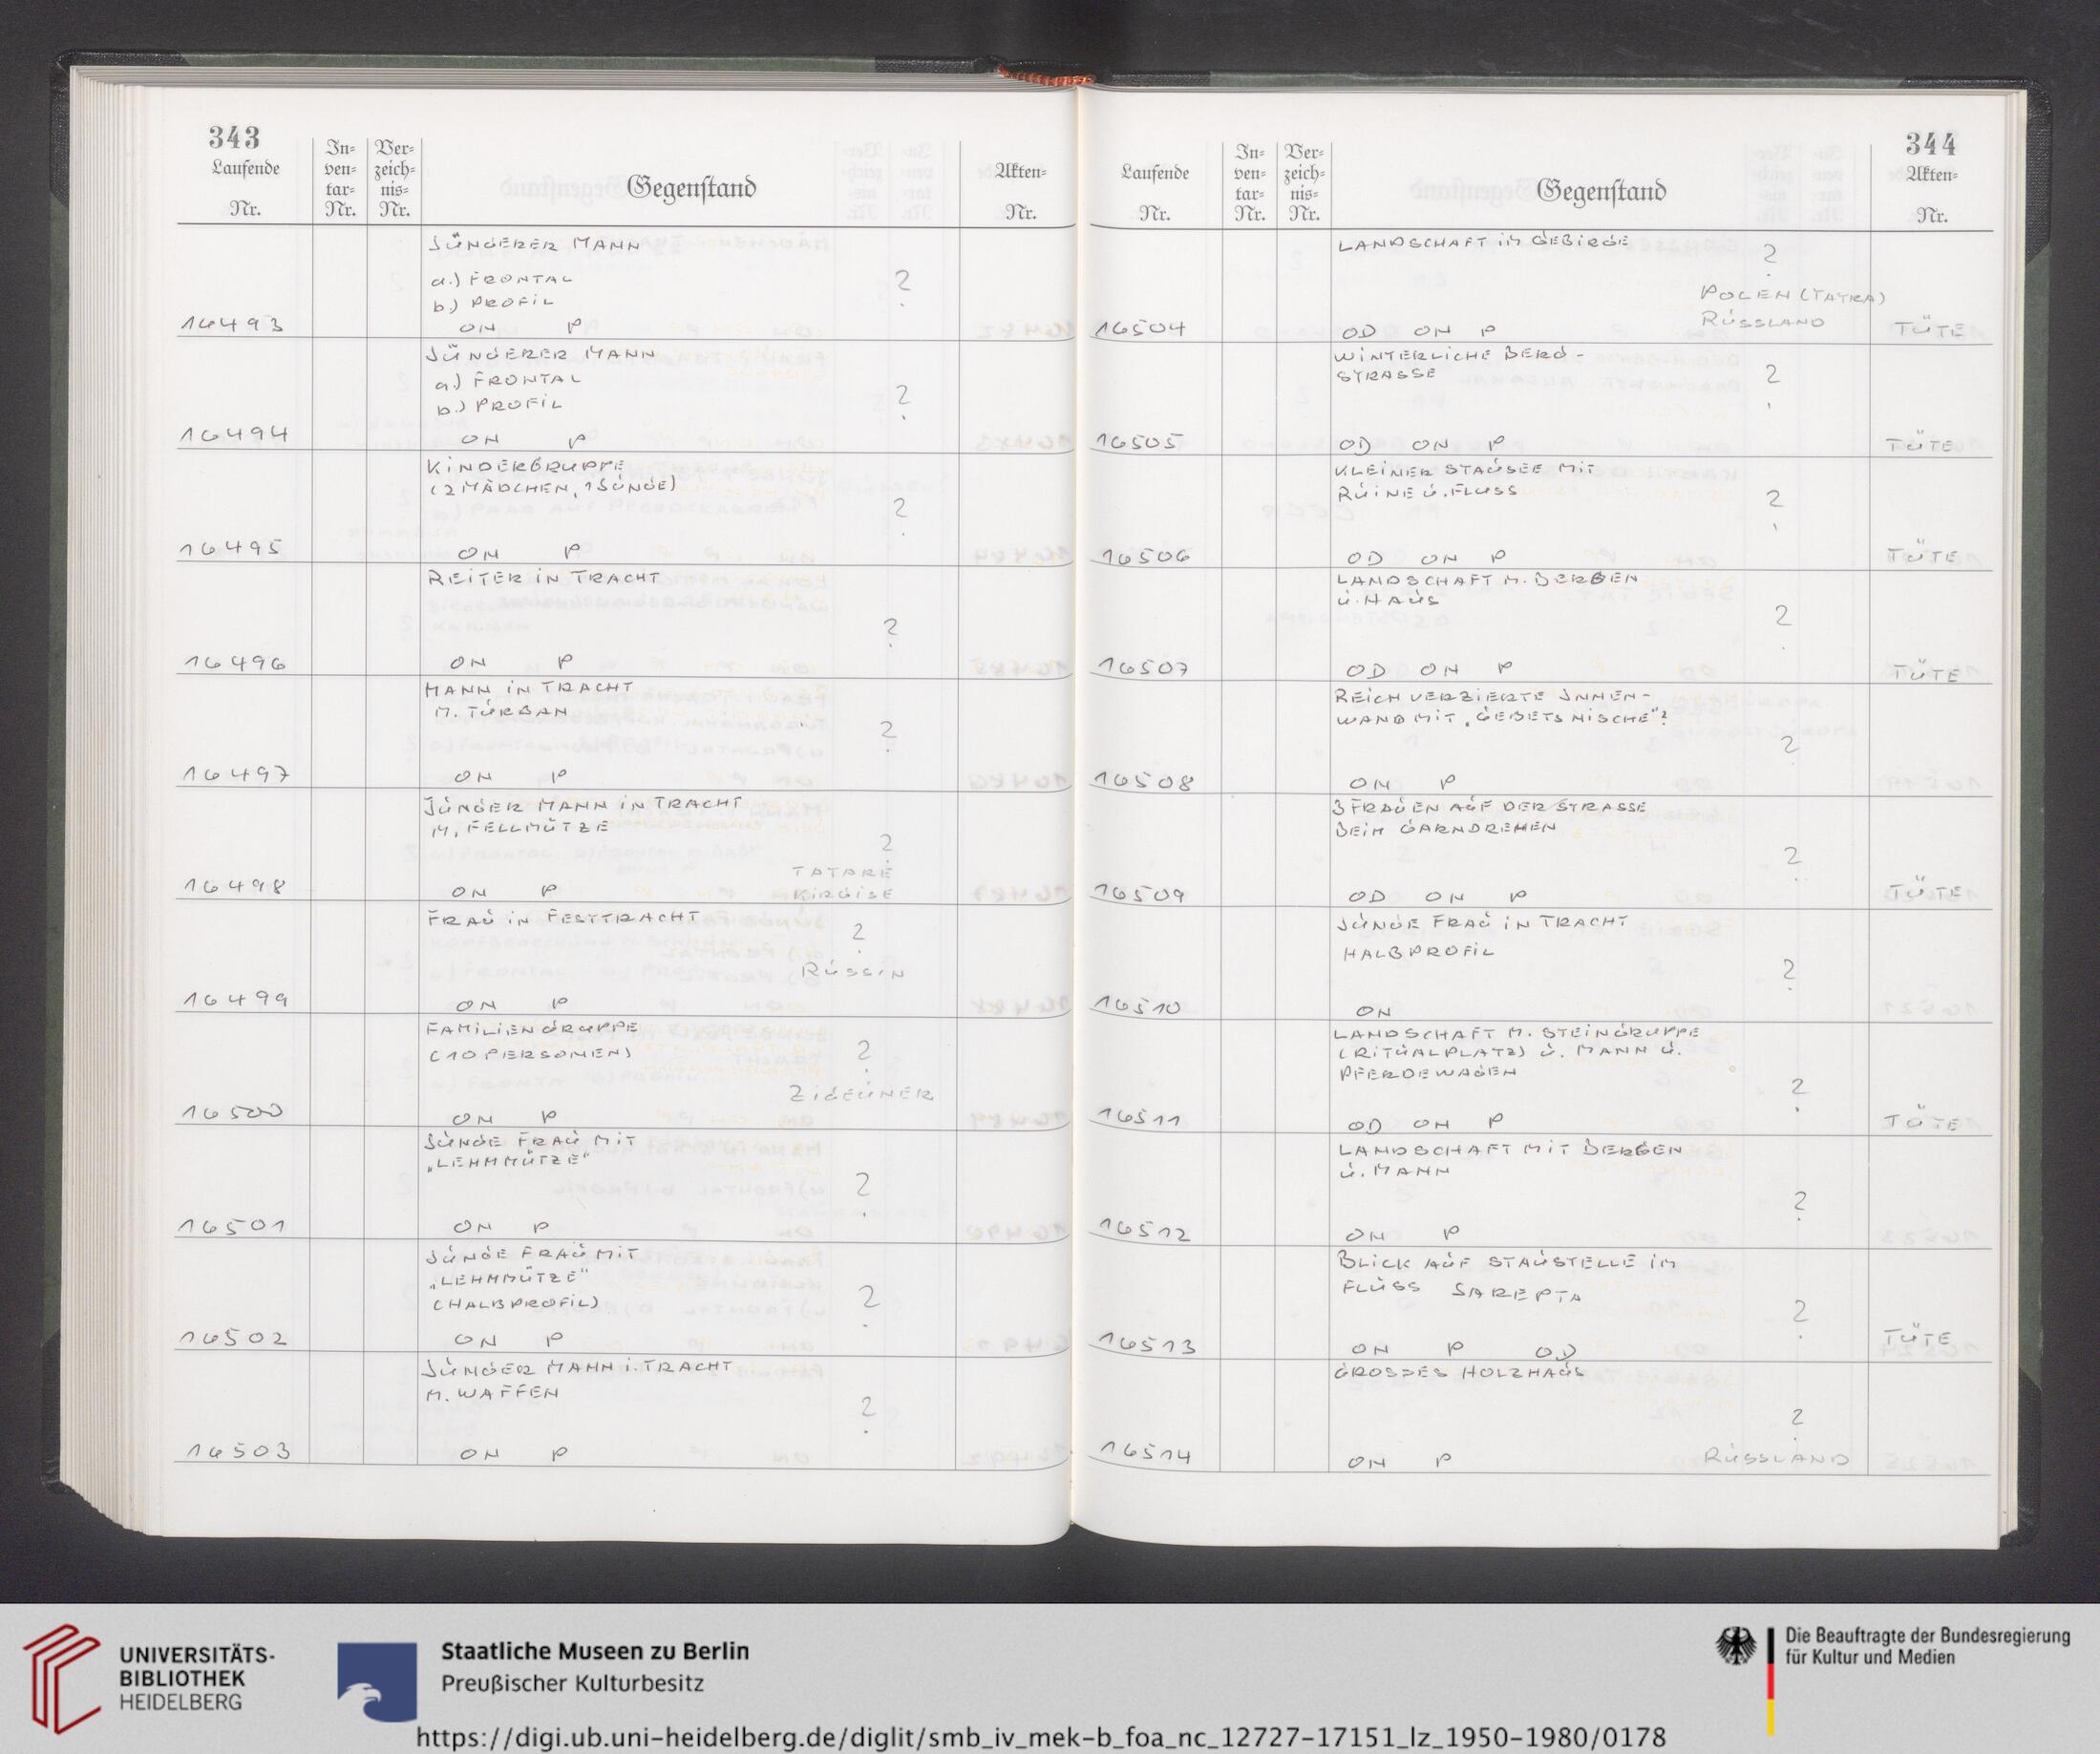 343
Laufende Nr.
In-ven-tar-Nr.
Ver-zeich-nis-Nr.
Gegenstand
Akten-Nr.
JÜNGERER MANN
a.) FRONTAL
b.) PROFIL ?
16493 ON P
JÜNGERER MANN
a.) FRONTAL
b.) PROFIL ?
16494 ON P
KINDERGRUPPE
(2 MÄDCHEN, 1 JUNGE)
?
16495 ON P
REITER IN TRACHT
?
16496 ON P
MANN IN TRACHT
M. TURBAN
?
16497 ON P
JUNGER MANN IN TRACHT
M. FELLMÜTZE
?
TATARE
16498 ON P KIRGISE
FRAU IN FESTTRACHT
?
RUSSIN
16499 ON P
FAMILIENGRUPPE
(10 PERSONEN) ?
ZIGEUNER
16500 ON P
JUNGE FRAU MIT
„LEHMMÜTZE"
?
16501 ON P
JUNGE FRAU MIT
„LEHMMÜTZE"
(HALBPROFIL) ?
16502 ON P
JUNGER MANN i. TRACHT
M. WAFFEN
?
16503 ON P
344
Laufende Nr.
In-ven-tar-Nr.
Ver-zeich-nis-Nr.
Gegenstand
Akten-Nr.
LANDSCHAFT im GEBIRGE
?
POLEN (TATRA)
RUSSLAND
16504 OD ON P TÜTE
WINTERLICHE BERG-
STRASSE ?
16505 OD ON P TÜTE
KLEINER STAUSEE MIT
RUINE U. FLUSS ?
16506 OD ON P TÜTE
LANDSCHAFT M. BERGEN
U. HAUS
?
16507 OD ON P TÜTE
REICH VERZIERTE INNEN-
WAND MIT „GEBETSNISCHE"?
?
16508 ON P
3 FRAUEN AUF DER STRASSE
BEIM GARNDREHEN
?
16509 OD ON P TÜTE
JUNGE FRAU IN TRACHT
HALBPROFIL
?
16510 ON
LANDSCHAFT M. STEINGRUPPE
(RITUALPLATZ) U. MANN U.
PFERDEWAGEN
?
16511 OD ON P TÜTE
LANDSCHAFT MIT BERGEN
U. MANN
?
16512 ON P
BLICK AUF STAUSTELLE IM
FLUSS SAREPTA
?
16513 ON P OD TÜTE
GROSSES HOLZHAUS
?
16514 ON P RUSSLAND
UNIVERSITÄTS-
BIBLIOTHEK
HEIDELBERG
Staatliche Museen zu Berlin
Preußischer Kulturbesitz
Die Beauftragte der Bundesregierung
für Kultur und Medien
https://digi.ub.uni-heidelberg.de/diglit/smb_iv_mek-b_foa_nc_12727-17151_lz_1950-1980/0178